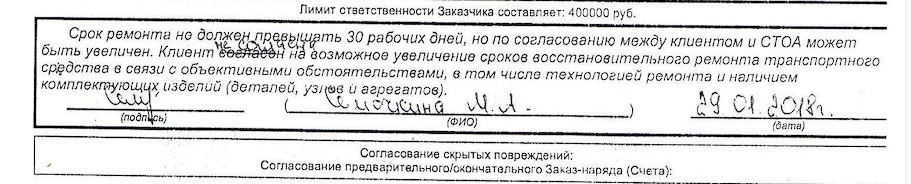 Лимит ответственности Заказчика составляет: 400000 руб.
Срок ремонта не должен превышать 30 рабочих дней, но по согласованию между клиентом и СТОА может
не согласен
быть увеличен. Клиент согласен на возможное увеличение сроков восстановительного ремонта транспортного
средства в связи с объективными обстоятельствами, в том числе технологией ремонта и наличием
комплектующих изделий (деталей, узлов и агрегатов).
( М. А. ) 29.01.2018г.
(подпись) (ФИО) (дата)
Согласование скрытых повреждений:
Согласование предварительного/окончательного Заказ-наряда (Счета):